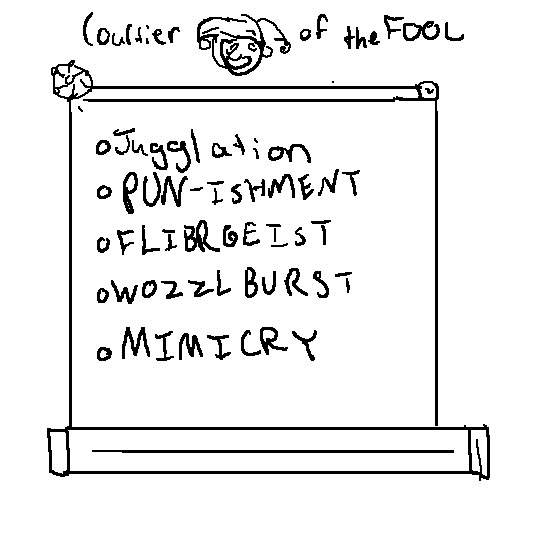 Courtier of the FOOL
Jugglation
PUN-ISHMENT
FLIBRGEIST
WOZZLBURST
MIMICRY